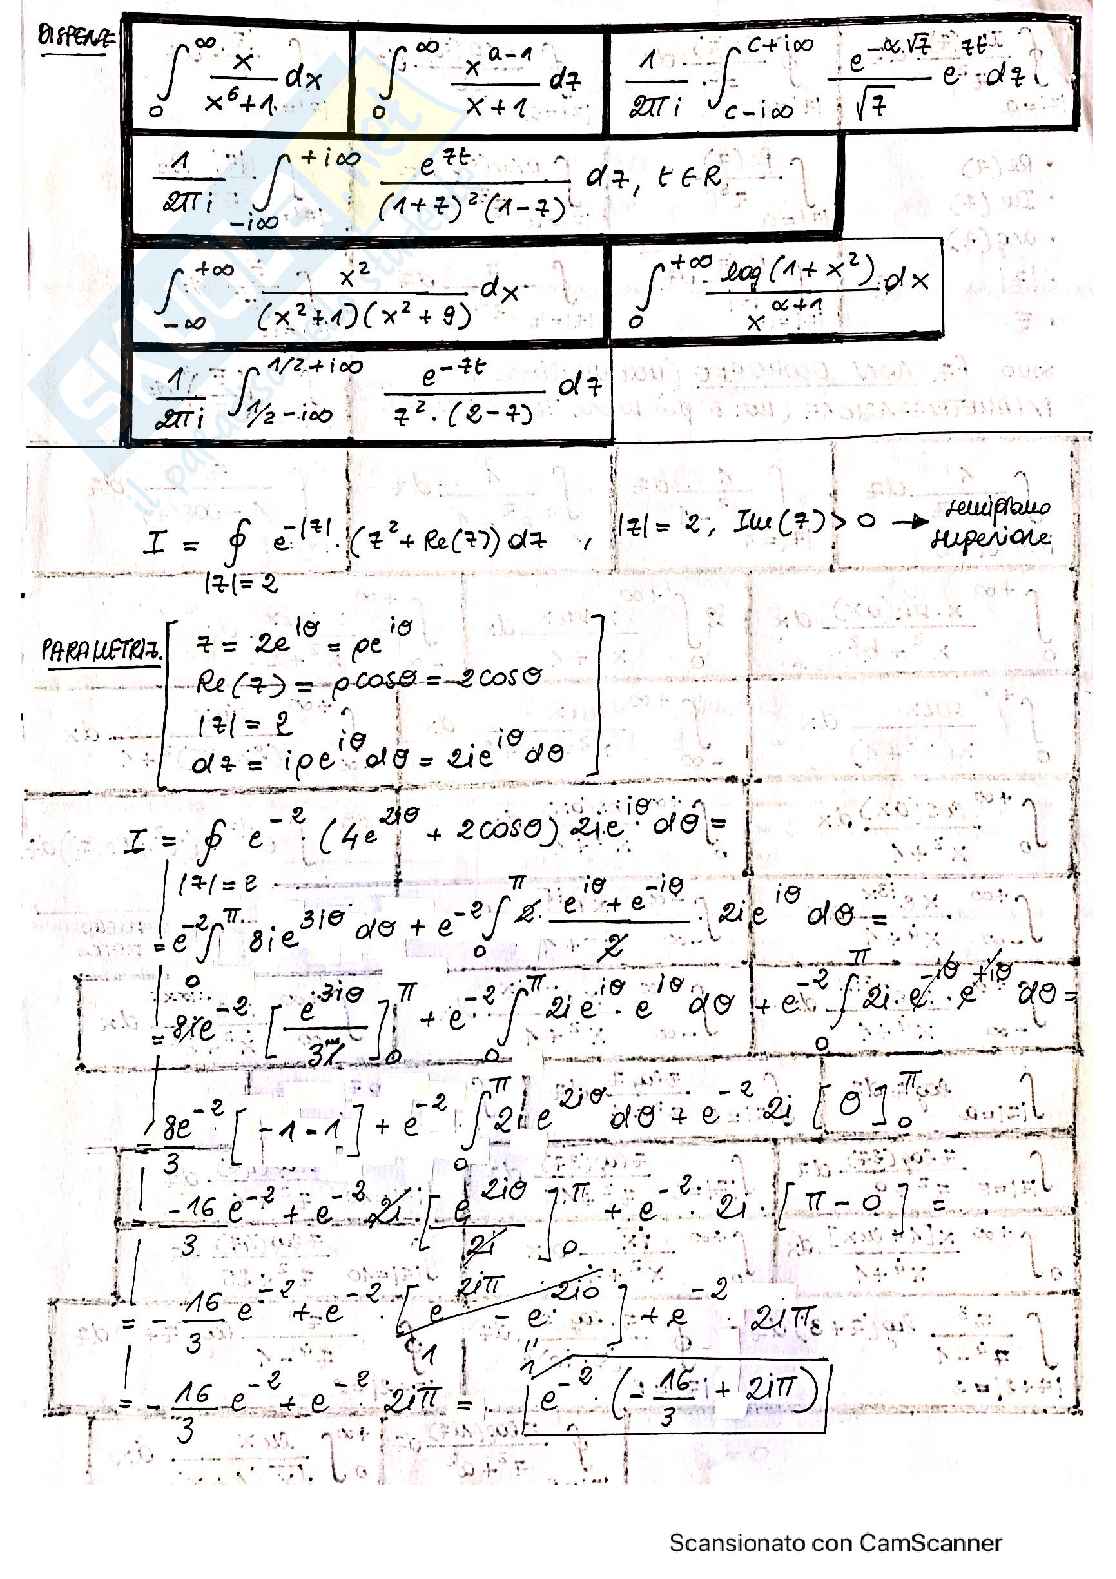 DISPENSE
∫₀^∞ x/(x⁶+1) dx
∫₀^∞ x^(a-1)/(x+1) dz
1/(2πi) · ∫_(c-i∞)^(c+i∞) e^(-α√z)/√z e^(zt) dz
1/(2πi) ∫_(-i∞)^(+i∞) e^(zt)/((1+z)²(1-z)) dz, t ∈ R
∫_(-∞)^(+∞) x²/((x²+1)(x²+9)) dx
∫₀^(+∞) log(1+x²)/x^(α+1) dx
1/(2πi) ∫_(1/2-i∞)^(1/2+i∞) e^(-zt)/(z²·(2-z)) dz
I = ∮_(|z|=2) e^(-|z|)·(z²+Re(z)) dz , |z| = 2, Im(z) > 0 → semipiano superiore
PARAMETRIZ.
z = 2e^(iθ) = ρe^(iθ)
Re(z) = ρcosθ = 2cosθ
|z| = 2
dz = iρe^(iθ) dθ = 2ie^(iθ) dθ
I = ∮_(|z|=2) e^(-2)·(4e^(2iθ) + 2cosθ) 2ie^(iθ) dθ =
= e^(-2) ∫₀^π 8ie^(3iθ) dθ + e^(-2) ∫₀^π 2· (e^(iθ) + e^(-iθ))/2 · 2ie^(iθ) dθ =
= 8ie^(-2) [e^(3iθ)/3i]₀^π + e^(-2) ∫₀^π 2ie^(iθ)·e^(iθ) dθ + e^(-2) ∫₀^π 2i·e^(-iθ)·e^(+iθ) dθ =
= 8e^(-2)/3 [-1-1] + e^(-2) ∫₀^π 2i e^(2iθ) dθ + e^(-2) 2i [θ]₀^π
= -16/3 e^(-2) + e^(-2) 2i·[e^(2iθ)/2i]₀^π + e^(-2)·2i·[π-0] =
= -16/3 e^(-2) + e^(-2)·[e^(2iπ) - e^(2i0)] + e^(-2)·2iπ
1 1
= -16/3 e^(-2) + e^(-2)·2iπ = e^(-2)·(-16/3 + 2iπ)
Scansionato con CamScanner